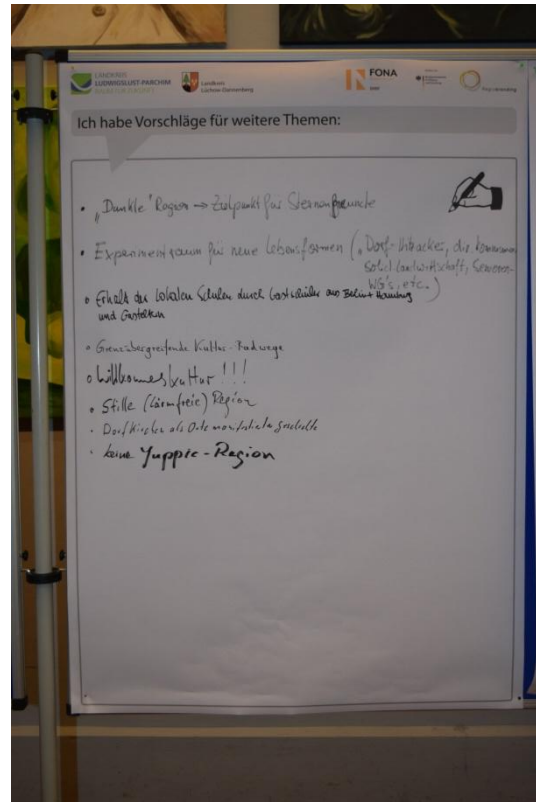 LANDKREIS
LUDWIGSLUST-PARCHIM
Landkreis
Lüchow-Dannenberg
FONA
BMBF
Ich habe Vorschläge für weitere Themen:
• „Dunkle" Region → Zielpunkt für Sternenfreunde
• Experimentraum für neue Lebensformen („Dorf-
solid. Landwirtschaft, Senioren-
WG's, etc.)
• Erhalt der lokalen Schulen durch Gastschüler aus Berlin + Hamburg
und Gasteltern
• Grenzübergreifende Kultur-Radwege
• Willkommenskultur!!!
• Stille (lärmfreie) Region
• Dorfkirchen als Orte manifestierter Geschichte
• keine Yuppie-Region